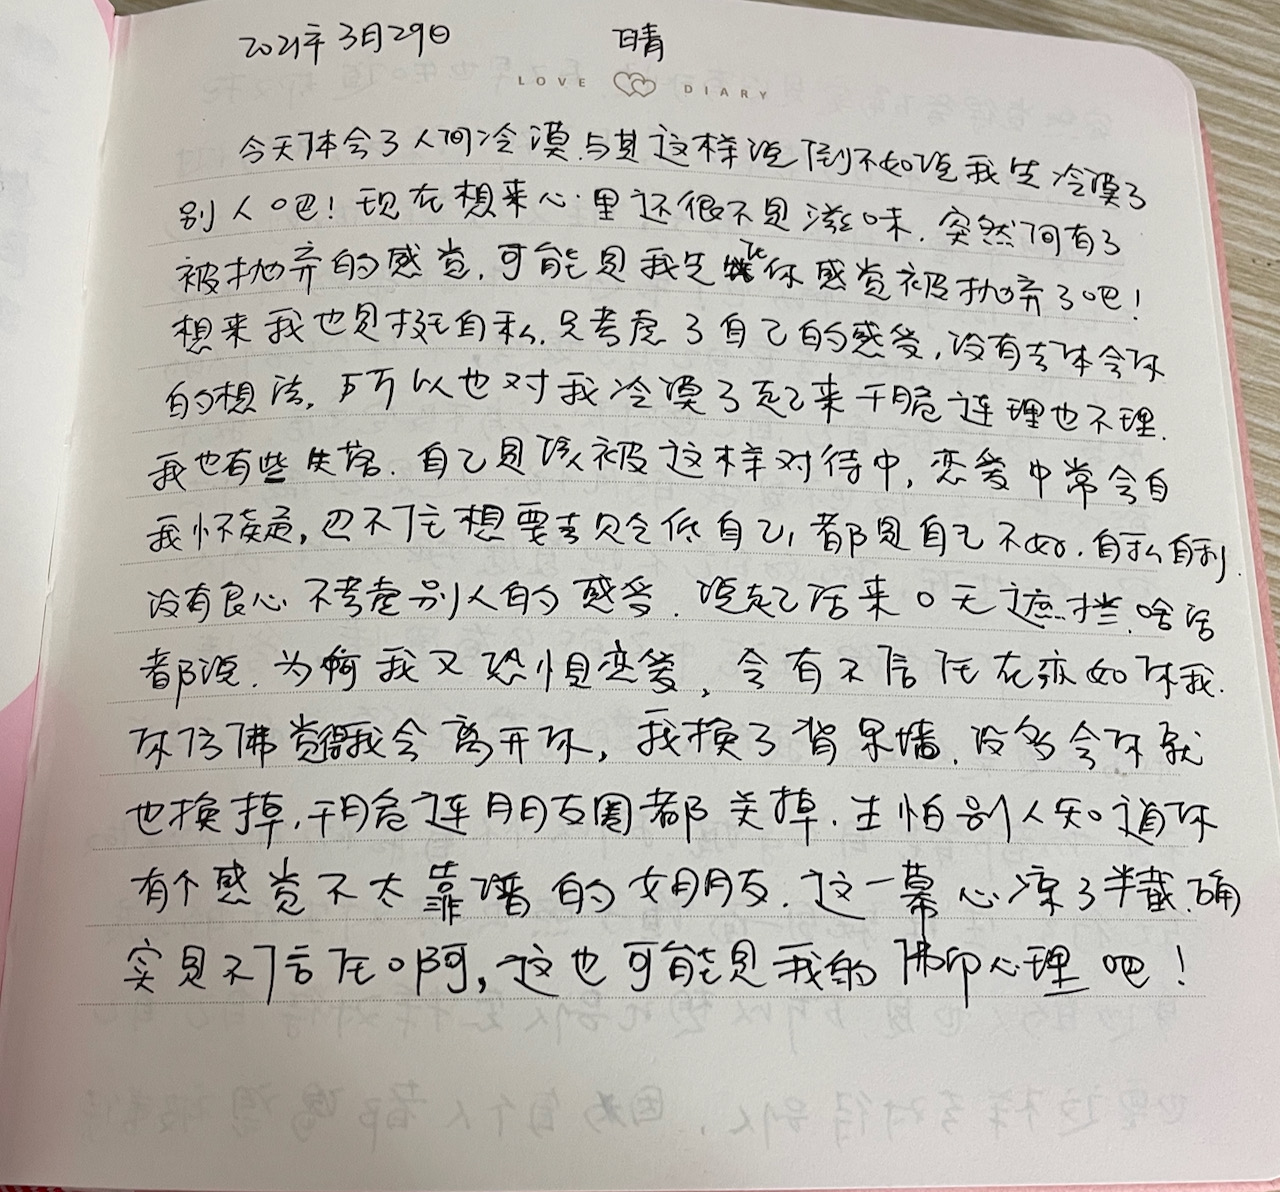 2021年3月29日 晴
LOVE DIARY
今天体会了人间冷漠.与其这样说倒不如说我先冷漠了
别人吧！现在想来心里还很不是滋味.突然间有了
被抛弃的感觉,可能是我先让你感觉被抛弃了吧！
想来我也是挺自私.只考虑了自己的感受,没有去体会你
的想法,所以也对我冷漠了起来干脆连理也不理.
我也有些失落.自己是该被这样对待中,恋爱中常会自
我怀疑,忍不住想要去贬低自己,都是自己不好.自私自利.
没有良心不考虑别人的感受.说起话来口无遮拦.啥话
都说.为何我又恐惧恋爱,会有不信任在亦如你我.
你仿佛觉得我会离开你,我换了背景墙.没多会你就
也换掉,干脆连朋友圈都关掉.生怕别人知道你
有个感觉不太靠谱的女朋友.这一幕心凉了半截.确
实是不信任啊,这也可能是我的心理吧！